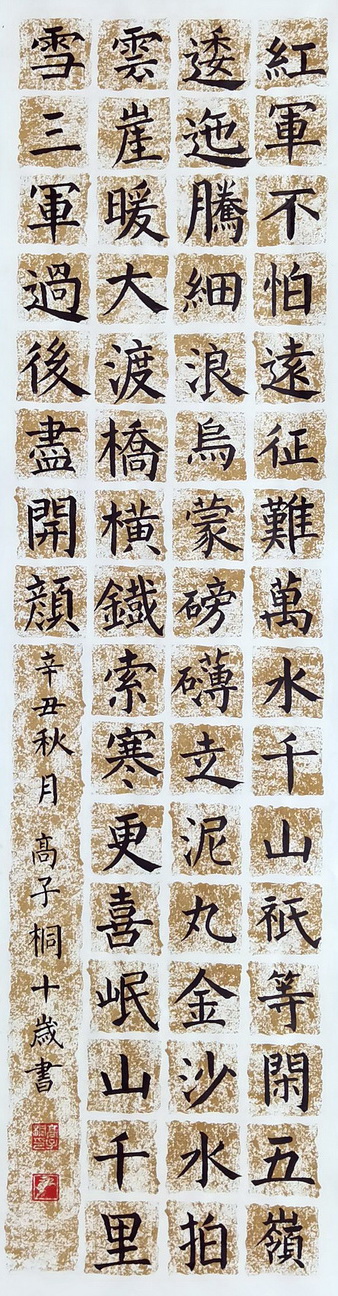 紅軍不怕遠征難萬水千山祇等閑五嶺
逶迤騰細浪烏蒙磅礴走泥丸金沙水拍
雲崖暖大渡橋橫鐵索寒更喜岷山千里
雪三軍過後盡開顔
辛丑秋月高子桐十歲書